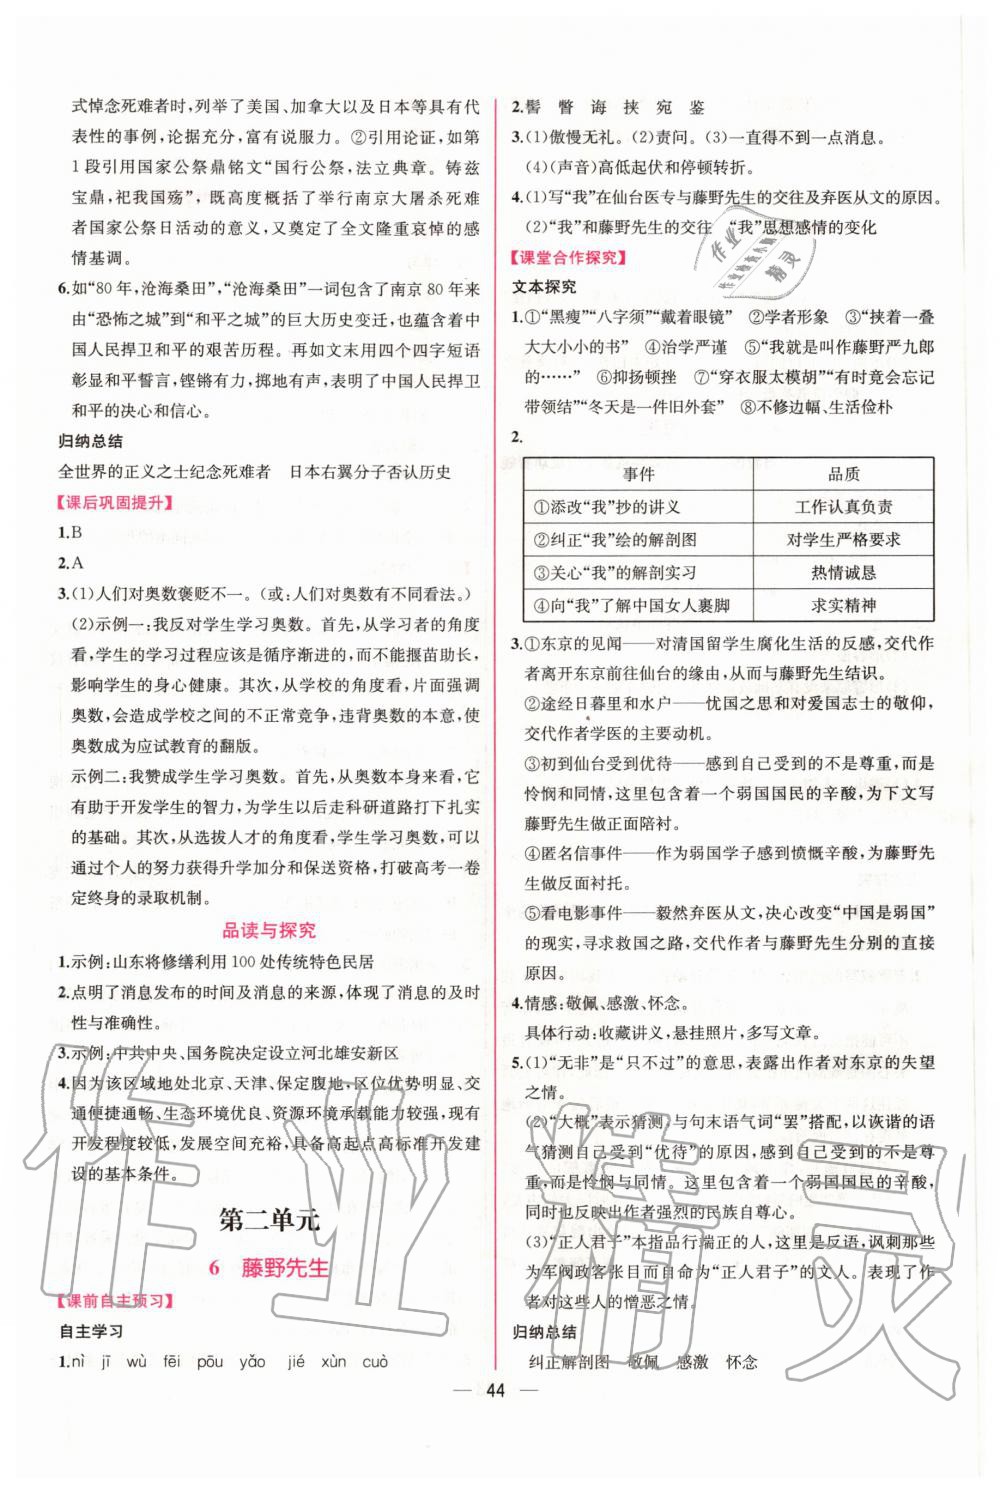 式悼念死难者时,列举了美国、加拿大以及日本等具有代
表性的事例,论据充分,富有说服力。②引用论证,如第
1段引用国家公祭鼎铭文“国行公祭,法立典章。铸兹
宝鼎,祀我国殇”,既高度概括了举行南京大屠杀死难
者国家公祭日活动的意义,又奠定了全文隆重哀悼的感
情基调。
6.如“80年,沧海桑田”,“沧海桑田”一词包含了南京80年来
由“恐怖之城”到“和平之城”的巨大历史变迁,也蕴含着中
国人民捍卫和平的艰苦历程。再如文末用四个四字短语
彰显和平誓言,铿锵有力,掷地有声,表明了中国人民捍卫
和平的决心和信心。
归纳总结
全世界的正义之士纪念死难者 日本右翼分子否认历史
【课后巩固提升】
1.B
2.A
3.(1)人们对奥数褒贬不一。(或:人们对奥数有不同看法。)
(2)示例一:我反对学生学习奥数。首先,从学习者的角度
看,学生的学习过程应该是循序渐进的,而不能揠苗助长,
影响学生的身心健康。其次,从学校的角度看,片面强调
奥数,会造成学校之间的不正常竞争,违背奥数的本意,使
奥数成为应试教育的翻版。
示例二:我赞成学生学习奥数。首先,从奥数本身来看,它
有助于开发学生的智力,为学生以后走科研道路打下扎实
的基础。其次,从选拔人才的角度看,学生学习奥数,可以
通过个人的努力获得升学加分和保送资格,打破高考一卷
定终身的录取机制。
品读与探究
1.示例:山东将修缮利用100处传统特色民居
2.点明了消息发布的时间及消息的来源,体现了消息的及时
性与准确性。
3.示例:中共中央、国务院决定设立河北雄安新区
4.因为该区域地处北京、天津、保定腹地,区位优势明显、交
通便捷通畅、生态环境优良、资源环境承载能力较强,现有
开发程度较低,发展空间充裕,具备高起点高标准开发建
设的基本条件。
第二单元
6 藤野先生
【课前自主预习】
自主学习
1.nì jī wù fěi pōu yǎo jié xùn cuò
2.髻 瞥 诲 挟 宛 鉴
3.(1)傲慢无礼。(2)责问。(3)一直得不到一点消息。
(4)(声音)高低起伏和停顿转折。
4.(1)写“我”在仙台医专与藤野先生的交往及弃医从文的原因。
(2)“我”和藤野先生的交往 “我”思想感情的变化
【课堂合作探究】
文本探究
1.①“黑瘦”“八字须”“戴着眼镜” ②学者形象 ③“挟着一叠
大大小小的书” ④治学严谨 ⑤“我就是叫作藤野严九郎
的……” ⑥抑扬顿挫 ⑦“穿衣服太模胡”“有时竟会忘记
带领结”“冬天是一件旧外套” ⑧不修边幅、生活俭朴
2.
事件 品质
①添改“我”抄的讲义 工作认真负责
②纠正“我”绘的解剖图 对学生严格要求
③关心“我”的解剖实习 热情诚恳
④向“我”了解中国女人裹脚 求实精神
3.①东京的见闻——对清国留学生腐化生活的反感,交代作
者离开东京前往仙台的缘由,从而与藤野先生结识。
②途经日暮里和水户——忧国之思和对爱国志士的敬仰,
交代作者学医的主要动机。
③初到仙台受到优待——感到自己受到的不是尊重,而是
怜悯和同情,这里包含着一个弱国国民的辛酸,为下文写
藤野先生做正面陪衬。
④匿名信事件——作为弱国学子感到愤慨辛酸,为藤野先
生做反面衬托。
⑤看电影事件——毅然弃医从文,决心改变“中国是弱国”
的现实,寻求救国之路,交代作者与藤野先生分别的直接
原因。
4.情感:敬佩、感激、怀念。
具体行动:收藏讲义,悬挂照片,多写文章。
5.(1)“无非”是“只不过”的意思,表露出作者对东京的失望
之情。
(2)“大概”表示猜测,与句末语气词“罢”搭配,以诙谐的语
气猜测自己受到“优待”的原因,感到自己受到的不是尊
重,而是怜悯与同情。这里包含着一个弱国国民的辛酸,
同时也反映出作者强烈的民族自尊心。
(3)“正人君子”本指品行端正的人,这里用反语,讽刺那些
为军阀政客张目而自命为“正人君子”的文人。表现了作
者对这些人的憎恶之情。
归纳总结
纠正解剖图 敬佩 感激 怀念
— 44 —
作业精灵